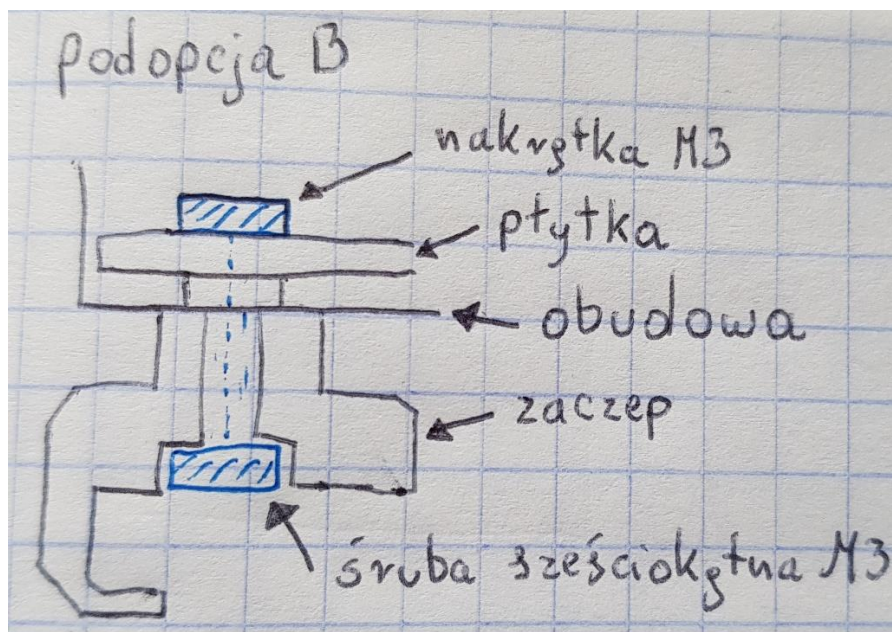 podopcja B
nakrętka M3
płytka
obudowa
zaczep
śruba sześciokątna M3